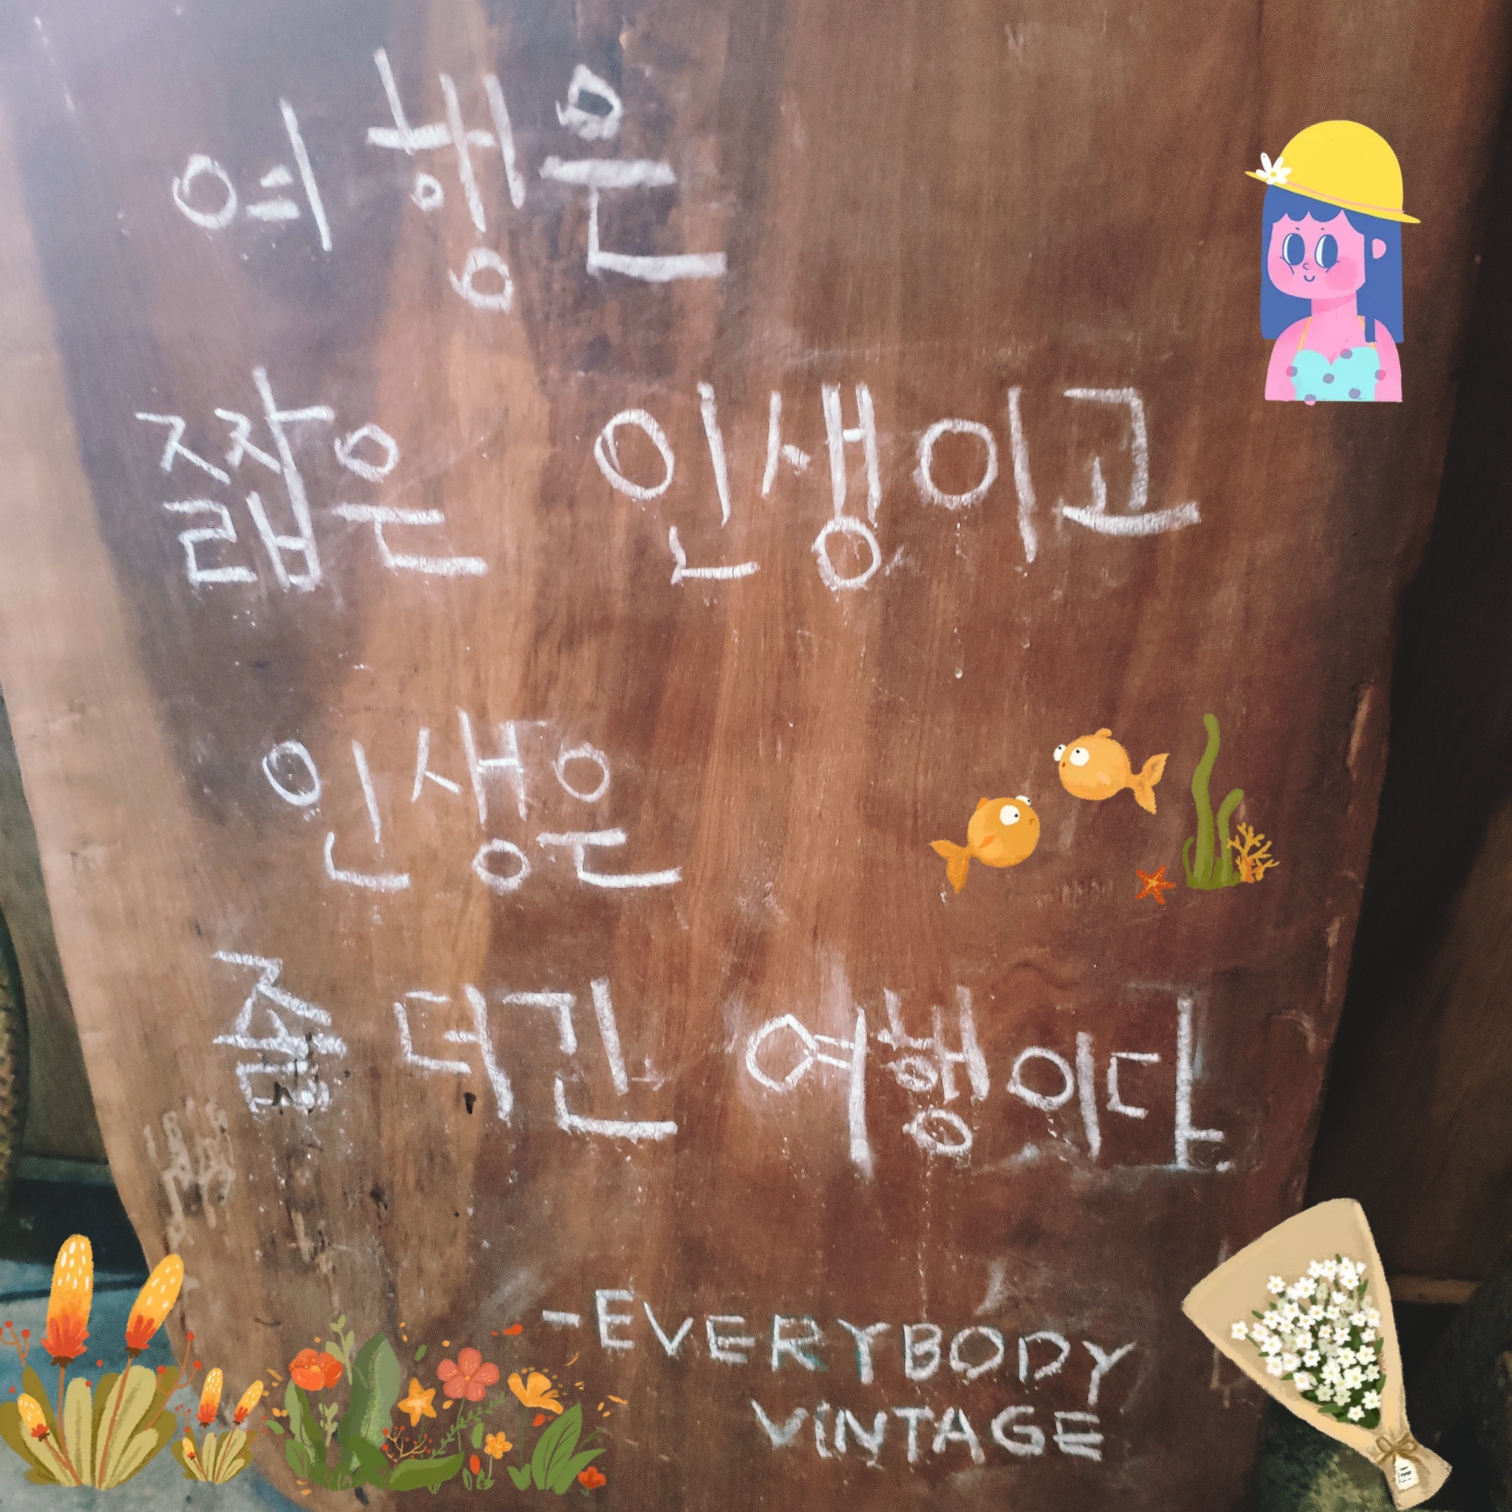 여행은
짧은 인생이고
인생은
좀 더긴 여행이다.
-EVERYBODY
VINTAGE